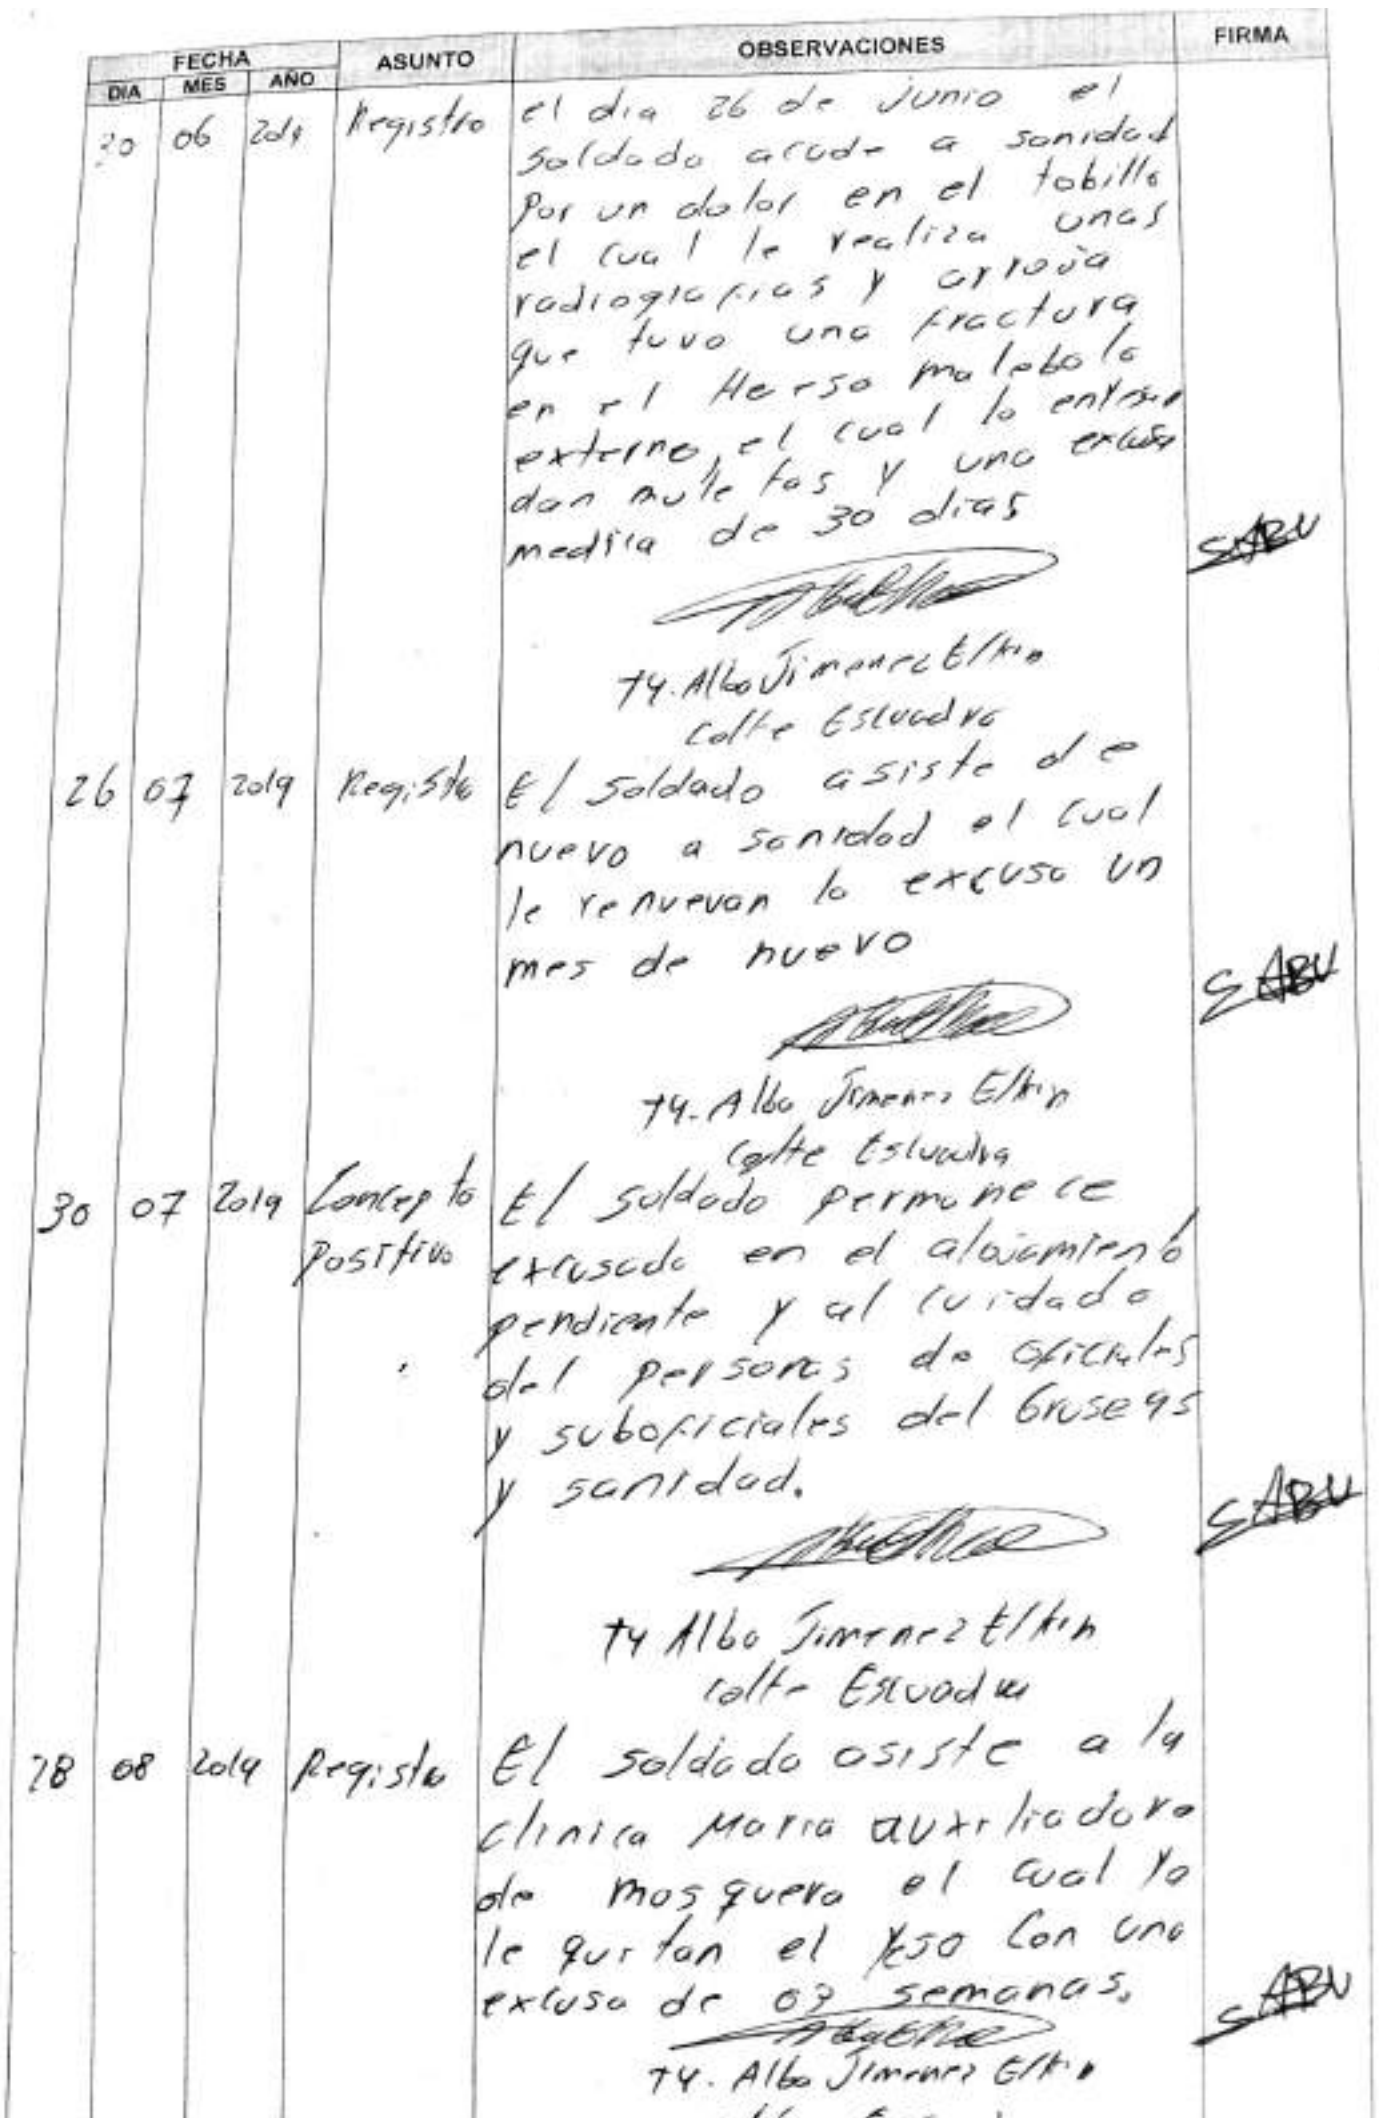 FECHA ASUNTO OBSERVACIONES FIRMA
DIA MES AÑO
30 06 2019 Registro el dia 26 de junio el
soldado acude a sanidad
Por un dolor en el tobillo
el cual le realiza unas
radiografias y arroja
que tuvo una fractura
en el malebolo
externo, el cual lo
dan muletas y una excusa
medica de 30 dias
SABU
T4. Alba Jimenez Elkin
Cdte Escuadra
26 07 2019 Registro El soldado asiste de
nuevo a sanidad el cual
le renuevan la excusa un
mes de nuevo
SABU
T4. Alba Jimenez Elkin
Cdte Escuadra
30 07 2019 Concepto El soldado permanece
Positivo excusado en el alojamiento
pendiente y al cuidado
del personas de oficiales
y suboficiales del Gruse 95
y sanidad.
SABU
T4 Alba Jimenez Elkin
Cdte Escuadra
28 08 2019 Registro El soldado asiste a la
clinica Maria auxiliadora
de mosquera el cual ya
le quitan el yeso con una
excusa de 03 semanas.
SABU
T4. Alba Jimenez Elkin